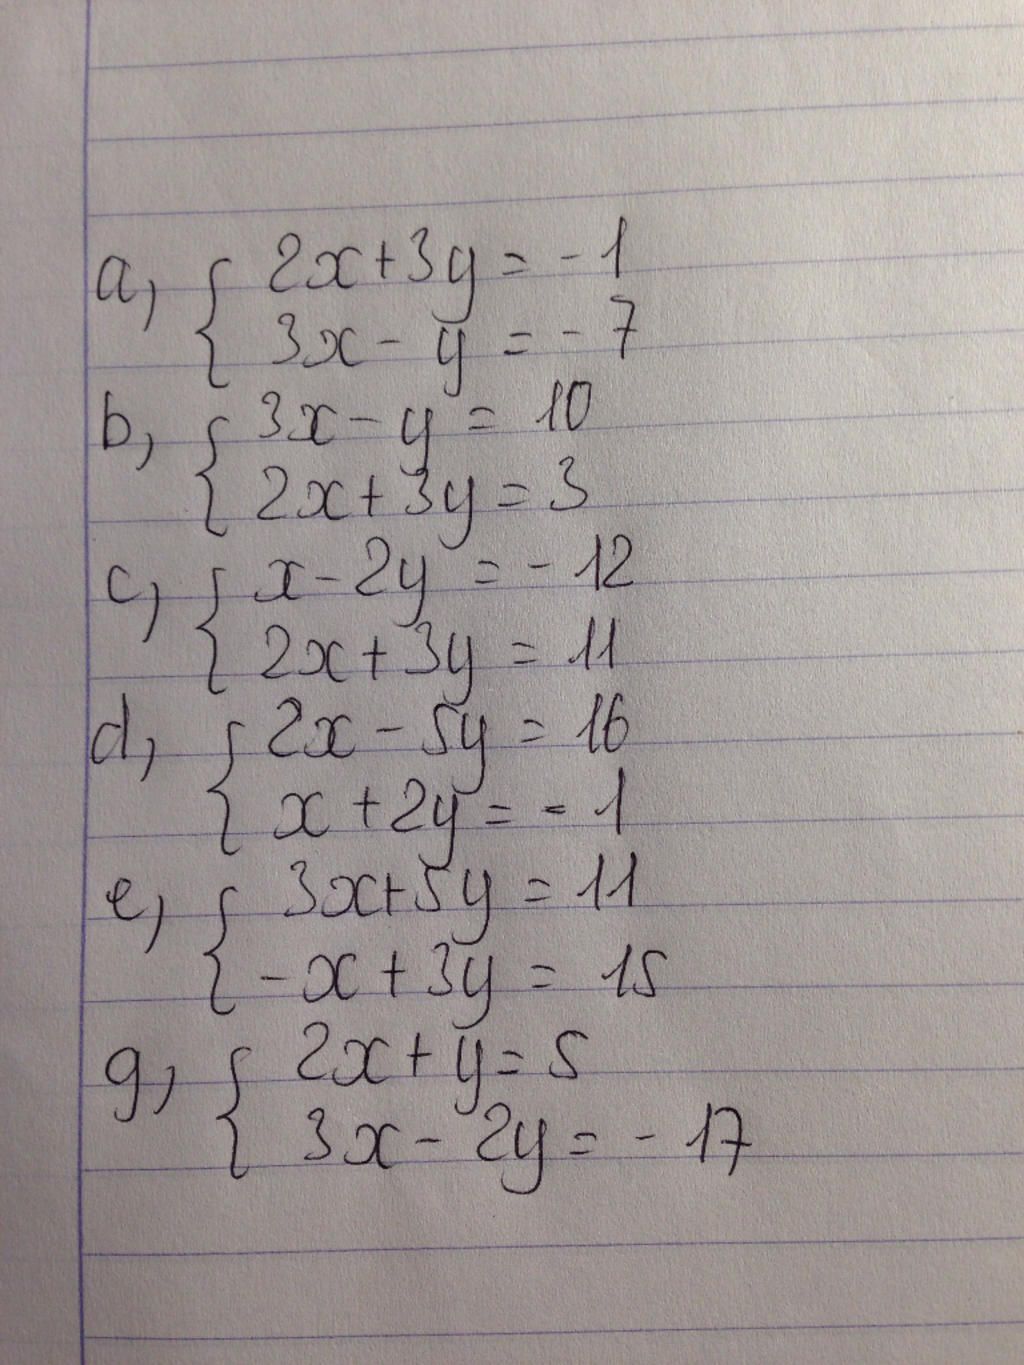 a, { 2x+3y = -1
3x - y = -7
b, { 3x - y = 10
2x + 3y = 3
c, { x - 2y = -12
2x + 3y = 11
d, { 2x - 5y = 16
x + 2y = -1
e, { 3x+5y = 11
-x + 3y = 15
g, { 2x + y = 5
3x - 2y = -17